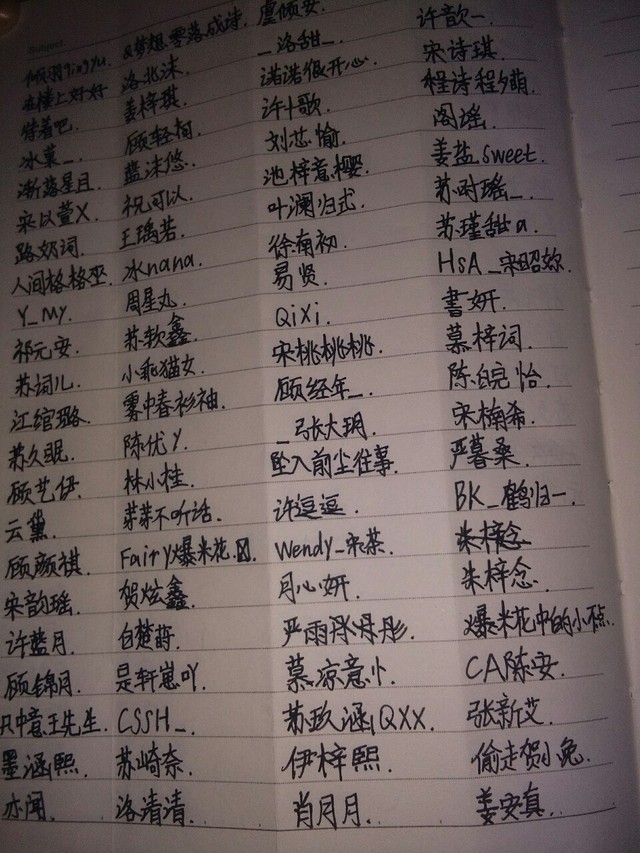 Subject
倾羽qingyu. &梦想零落成诗. 虞倾安. 许歆一.
在楼上好好 洛北沫. _洛甜_. 宋诗琪.
替着吧. 姜梓琪. 诺诺很开心. 程诗程夕萌.
冰菓_. 顾轻栀. 许十歌. 阁谣.
渐落星目. 蓝沫悠. 刘芯愉. 姜盐sweet.
宋以萱X. 祝可以. 池梓意樱. 苏时瑶_.
路奶词. 王瑀若. 叶澜归弌. 苏瑾甜a.
人间格格巫. 冰nana. 徐南初. HsA_宋昭欢.
Y_MY. 周星丸. 易贤. 書妍.
祁元安. 苏软鑫. QiXi. 慕梓词.
苏词儿. 小乖猫女. 宋桃桃桃. 陈皖怡.
江绾璐. 雾中春衫袖. 顾经年_. 宋楠希.
苏久眠. 陈优Y. _张大玥. 严暮桑.
顾艺伊. 林小桂. 坠入前尘往事. BK_鹤归一.
云黛. 芽芽不听话. 许逗逗. 朱梓念.
顾颜祺. Fairy爆米花. Wendy_宋茶. 朱梓念.
宋韵瑶. 贺炫鑫. 月心妍. 爆米花中的小.
许蓝月. 白楚蒔. 严雨彤彤彤. CA陈安.
顾锦月. 是轩崽吖. 慕凉意忄. 张新艾.
只中意王先生. CSSH_. 苏玖涵QXX. 偷走贺小兔.
墨涵熙. 苏崎奈. 伊梓熙. 姜安真.
亦闻. 洛清清. 肖月月.